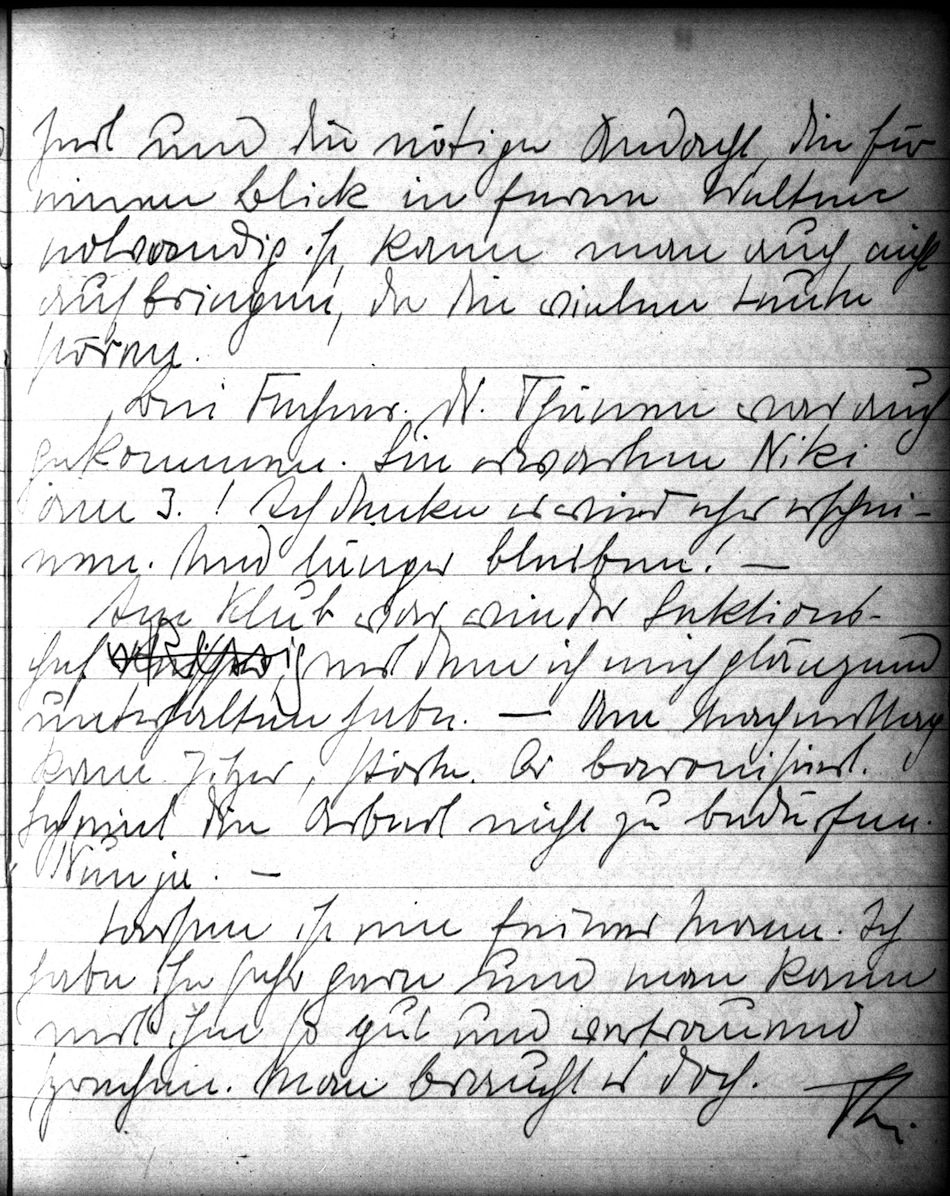 heit und die nötige Andacht, die für
einen Blick in ferne Welten
notwendig ist, kann man auch nicht
aufbringen, da die vielen Leute
stören.
Bei Fechner. N. Thünen war auch
gekommen. Sie erwarten Niki
am 3.! Ich denke er wird eher erschei-
nen. Und länger bleiben! —
Im Klub war wieder Sektions-
chef mit dem ich mich glänzend
unterhalten habe. — Am Nachmittag
kam , störte. Er baronisiert.
Scheint die Arbeit nicht zu bedürfen.
Nun ja. —
Larsen ist ein feiner Mann. Ich
habe ihn sehr gern und man kann
mit ihm so gut und vertrauend
sprechen. Man braucht es doch. —